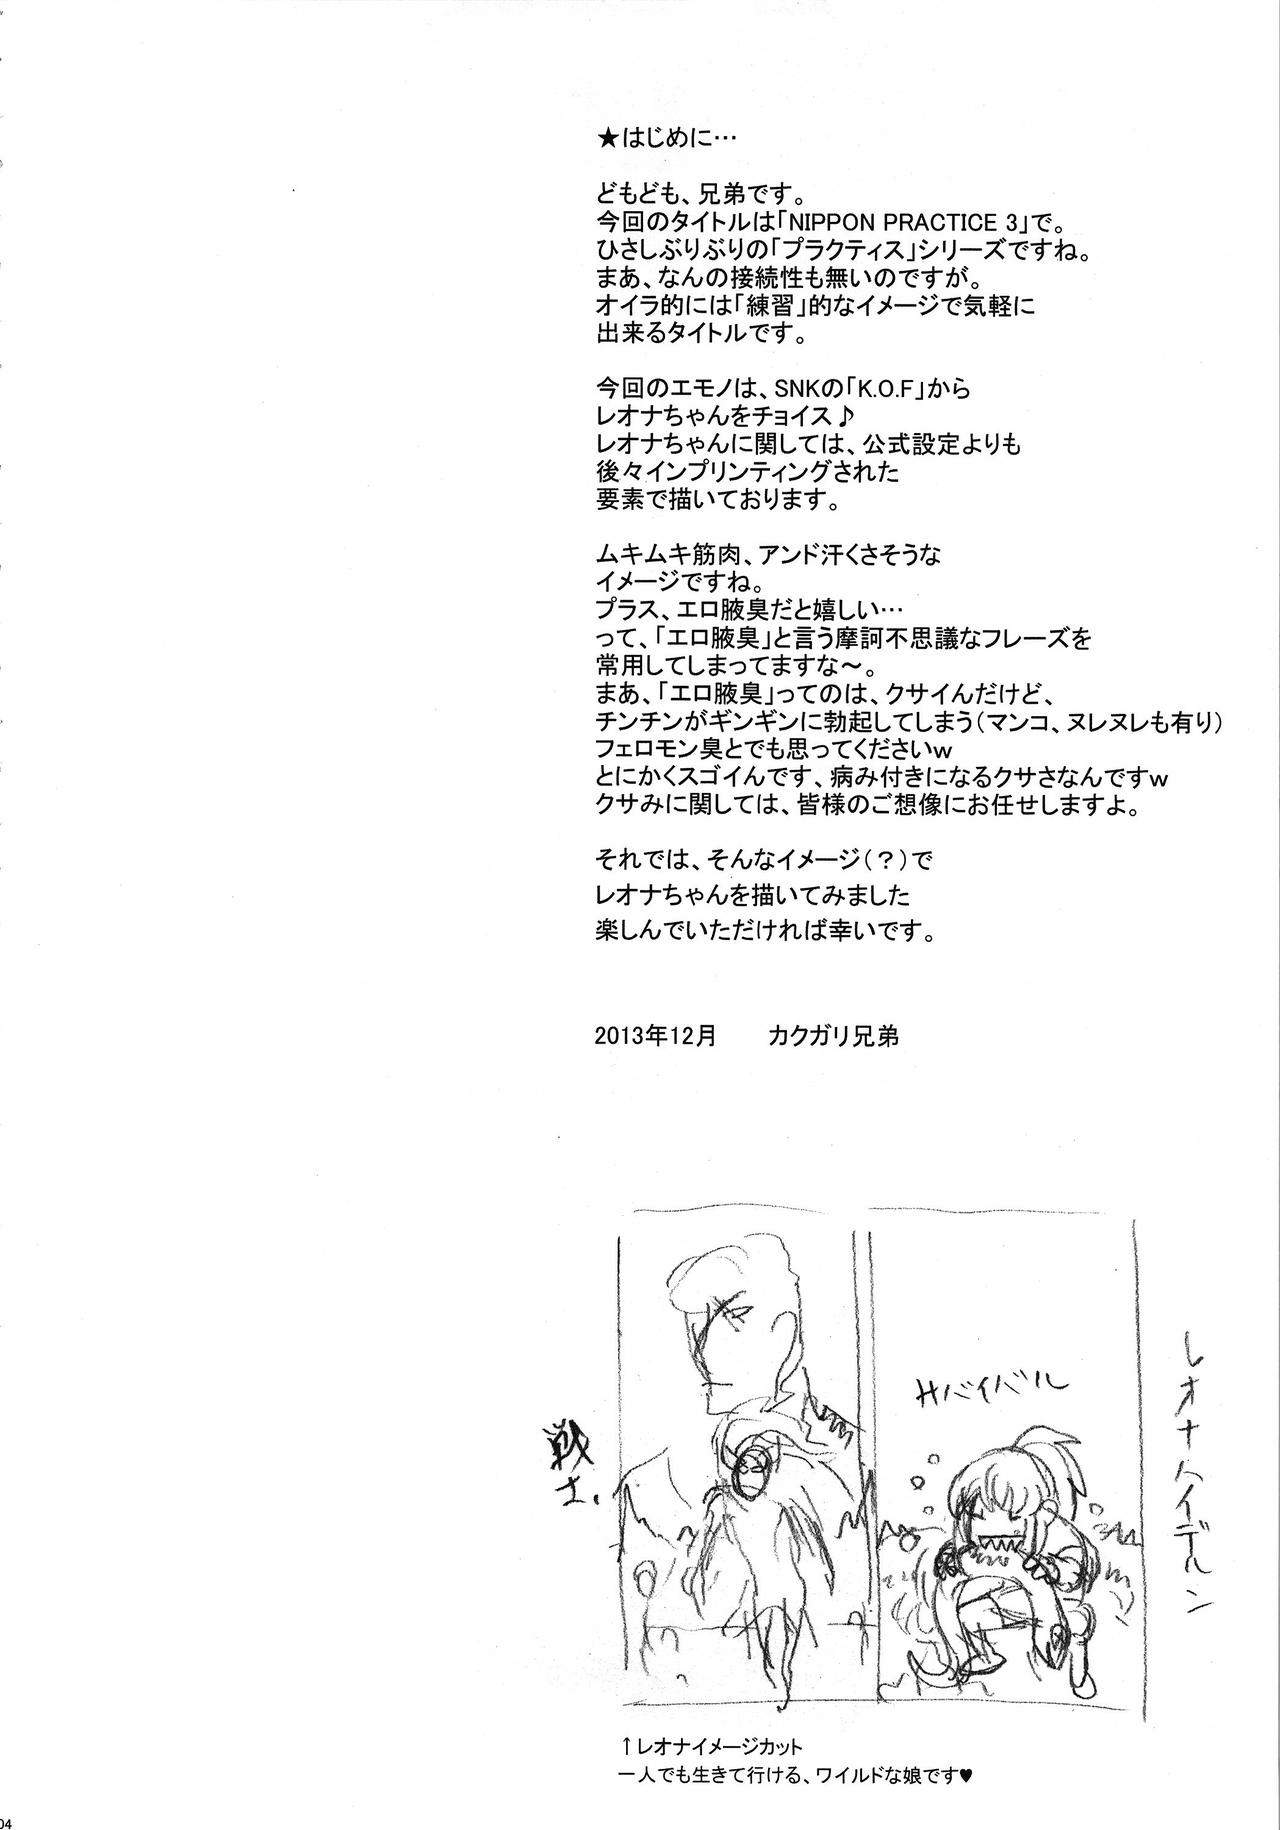 ★はじめに…
どもども、兄弟です。
今回のタイトルは「NIPPON PRACTICE 3」で。
ひさしぶりぶりの「プラクティス」シリーズですね。
まあ、なんの接続性も無いのですが。
オイラ的には「練習」的なイメージで気軽に
出来るタイトルです。
今回のエモノは、SNKの「K.O.F」から
レオナちゃんをチョイス♪
レオナちゃんに関しては、公式設定よりも
後々インプリンティングされた
要素で描いております。
ムキムキ筋肉、アンド汗くさそうな
イメージですね。
プラス、エロ腋臭だと嬉しい…
って、「エロ腋臭」と言う摩訶不思議なフレーズを
常用してしまってますな～。
まあ、「エロ腋臭」ってのは、クサイんだけど、
チンチンがギンギンに勃起してしまう（マンコ、ヌレヌレも有り）
フェロモン臭とでも思ってくださいw
とにかくスゴイんです、病み付きになるクサさなんですw
クサみに関しては、皆様のご想像にお任せしますよ。
それでは、そんなイメージ（？）で
レオナちゃんを描いてみました
楽しんでいただければ幸いです。
2013年12月　　カクガリ兄弟
レオナハイデルン
サバイバル
戦士。
↑レオナイメージカット
一人でも生きて行ける、ワイルドな娘です♥
04